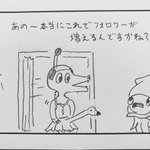 あの〜本当にこれでフォロワーが
増えるんですかね?